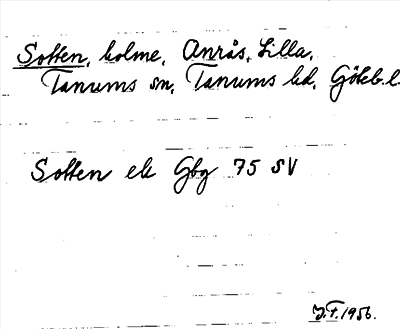 Sotten, holme, Anrås, Lilla,
Tanums sn, Tanums hd, Göteb. l.
Sotten ek Gbg 75 SV
J.F. 1956.